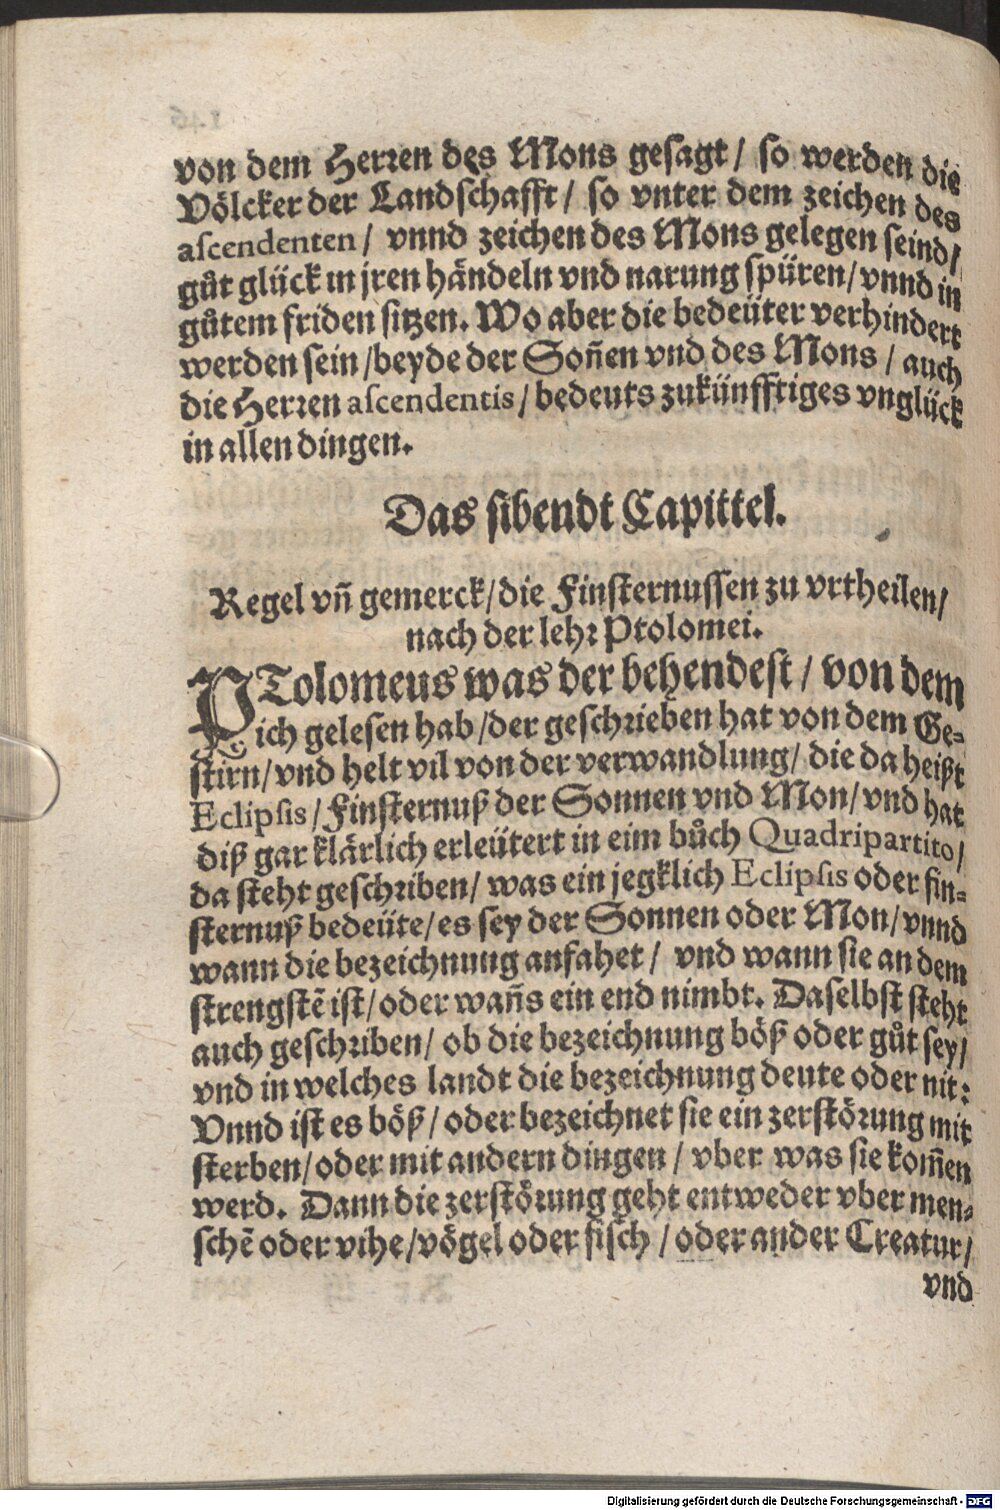 von dem Herren des Mons gesagt / so werden die
Völcker der Landschafft / so vnter dem zeichen des
ascendenten / vnnd zeichen des Mons gelegen seind /
gůt glück in jren händeln vnd narung spüren / vnnd in
gůtem friden sitzen. Wo aber die bedeüter verhindert
werden sein / beyde der Sonẽn vnd des Mons / auch
die Herren ascendentis / bedeuts zukünfftiges vnglück
in allen dingen.
Das sibendt Capittel.
Regel vñ gemerck / die Finsternussen zu vrtheilen /
nach der lehr Ptolomei.
PTolomeus was der behendest / von dem
ich gelesen hab / der geschrieben hat von dem Ge-
stirn / vnd helt vil von der verwandlung / die da heißt
Eclipsis / Finsternuß der Sonnen vnd Mon / vnd hat
diß gar klärlich erleütert in eim bůch Quadripartito /
da steht geschriben / was ein jegklich Eclipsis oder fin-
sternuß bedeüte / es sey der Sonnen oder Mon / vnnd
wann die bezeichnung anfahet / vnd wann sie an dem
strengstẽ ist / oder wañs ein end nimbt. Daselbst steht
auch geschriben / ob die bezeichnung böß oder gůt sey /
vnd in welches landt die bezeichnung deute oder nit:
Vnnd ist es böß / oder bezeichnet sie ein zerstörung mit
sterben / oder mit andern dingen / vber was sie kom̃en
werd. Dann die zerstörung geht entweder vber men-
schẽ oder vihe / vögel oder fisch / oder ander Creatur /
vnd
Digitalisierung gefördert durch die Deutsche Forschungsgemeinschaft - DFG